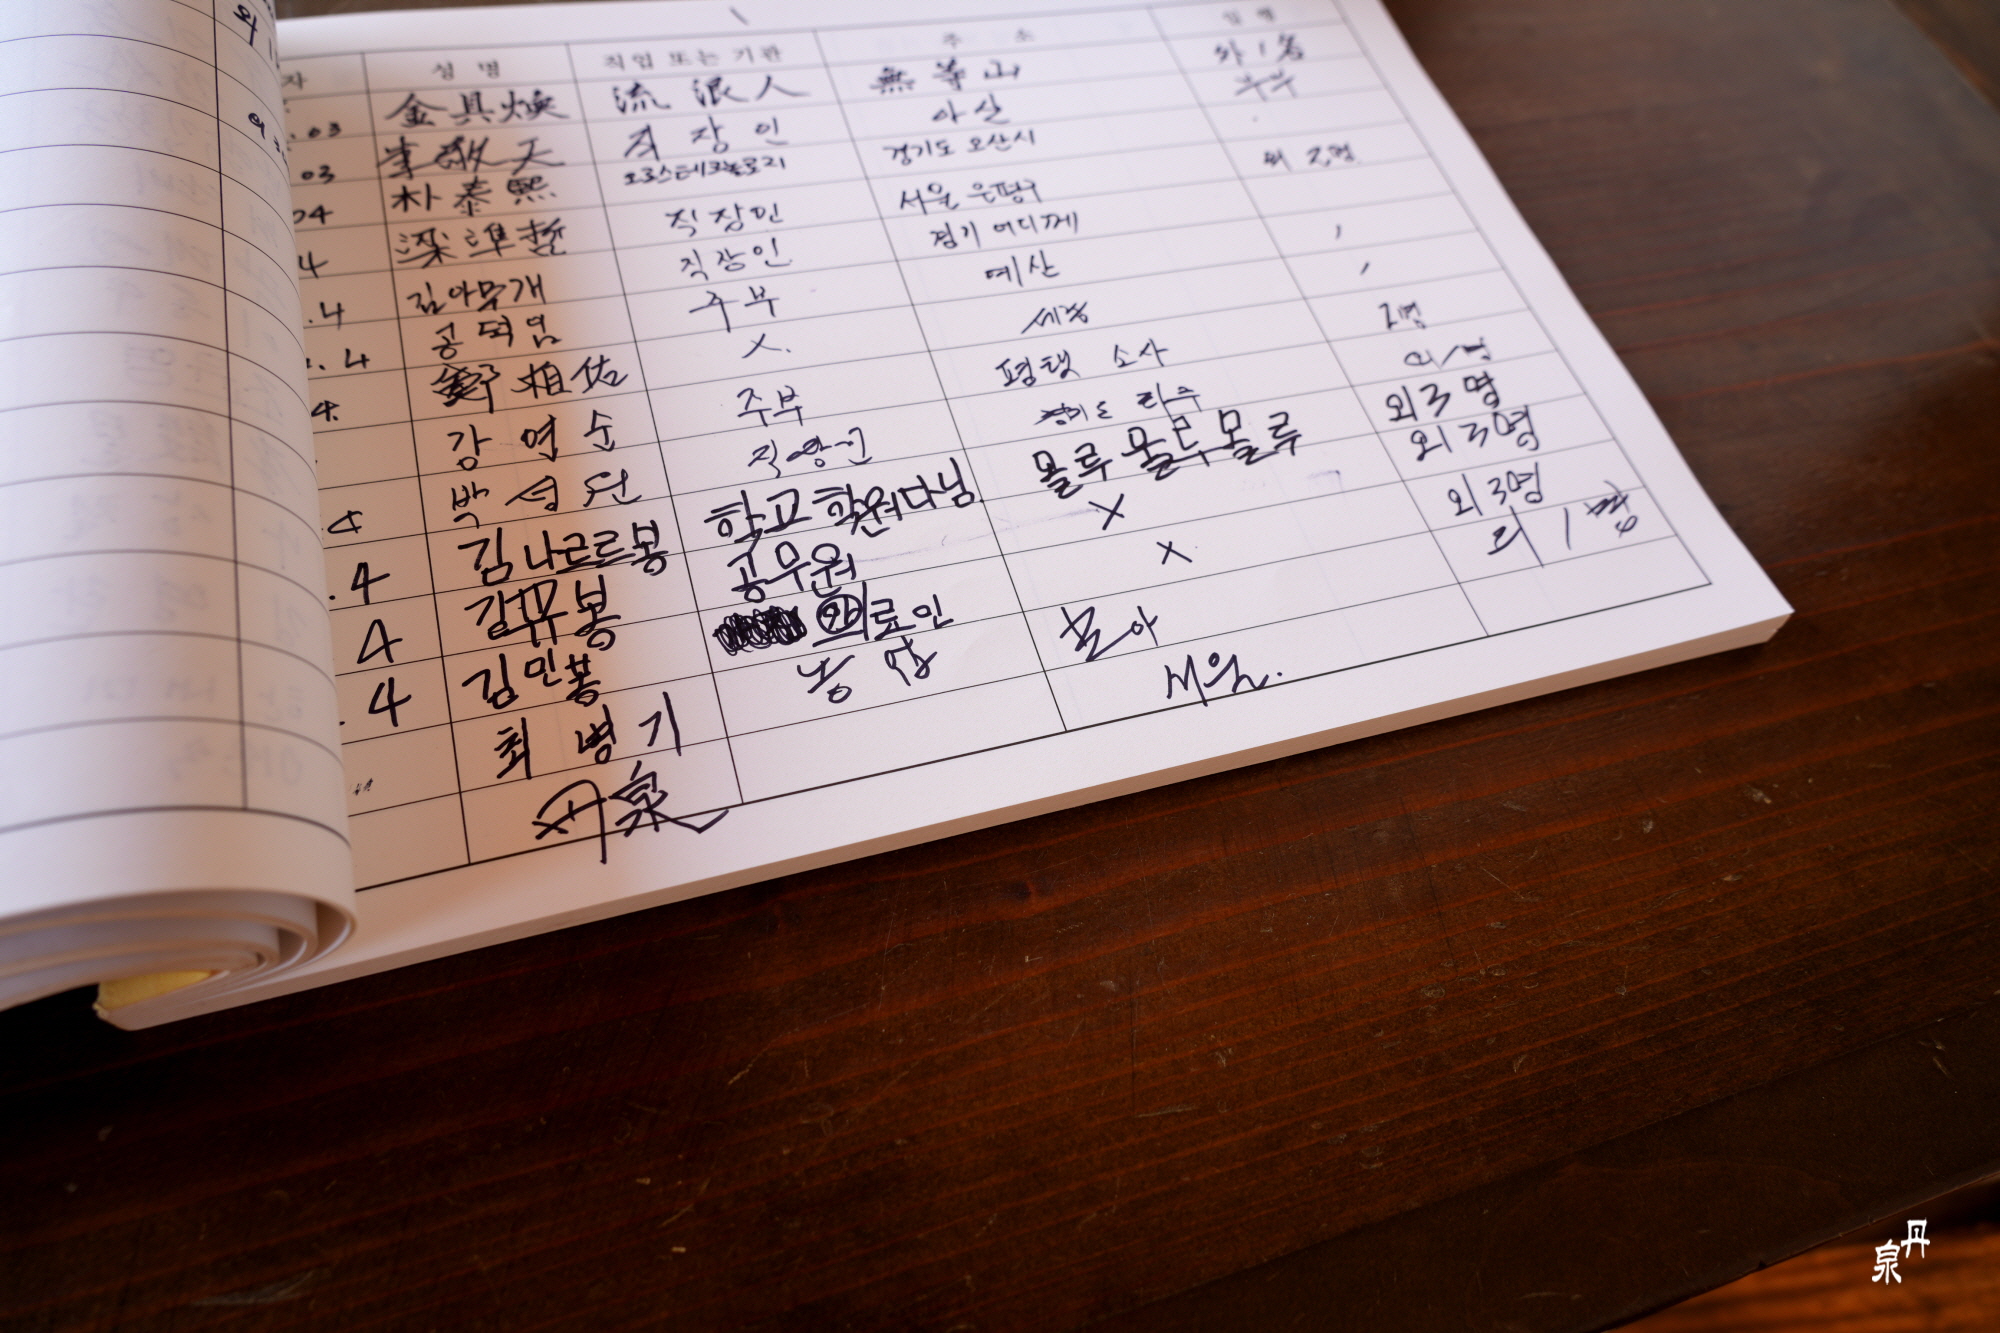 외 1
외 3
자 성 명 직업 또는 기관 주 소
.03 金具煥 流浪人 無等山 外 1 名
03 李敬天 직장인 아산 부부
04 朴泰熙 오로스테크놀로지 경기도 오산시
4 梁準哲 직장인 서울 은평구 외 2명
.4 김아무개 직장인 경기 어디께
.4 공덕임 주부 예산
4. 相佑 X. 세종
강영순 주부 평택 소사 2명
4 박성 직장인 경기도 외 1명
.4 김나르르봉 학교학원다님. 몰루몰루몰루 외 3명
4 김뿌봉 공무원 X 외 3명
.4 김민봉 의료인 X 외 3명
최병기 농업 외 1명
丹泉 서울.
丹泉